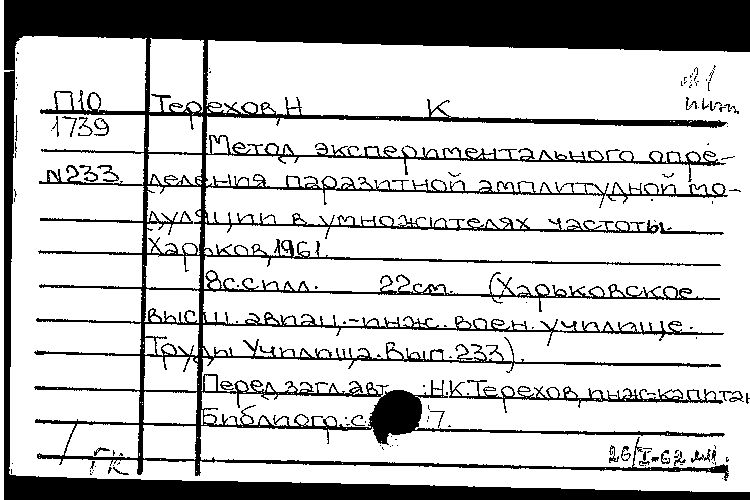 П10 Терехов, Н К
1739
Метод экспериментального опре-
N233 деления паразитной амплитудной мо-
дуляции в умножителях частоты.
Харьков, 1961.
8с.с илл. 22см. (Харьковское
высш. авиац.-инж. воен. училище.
Труды Училища. Вып. 233).
Перед загл. авт.: Н.К.Терехов, инж-капитан
Библиогр.: с. 7.
ГК 26/I-62